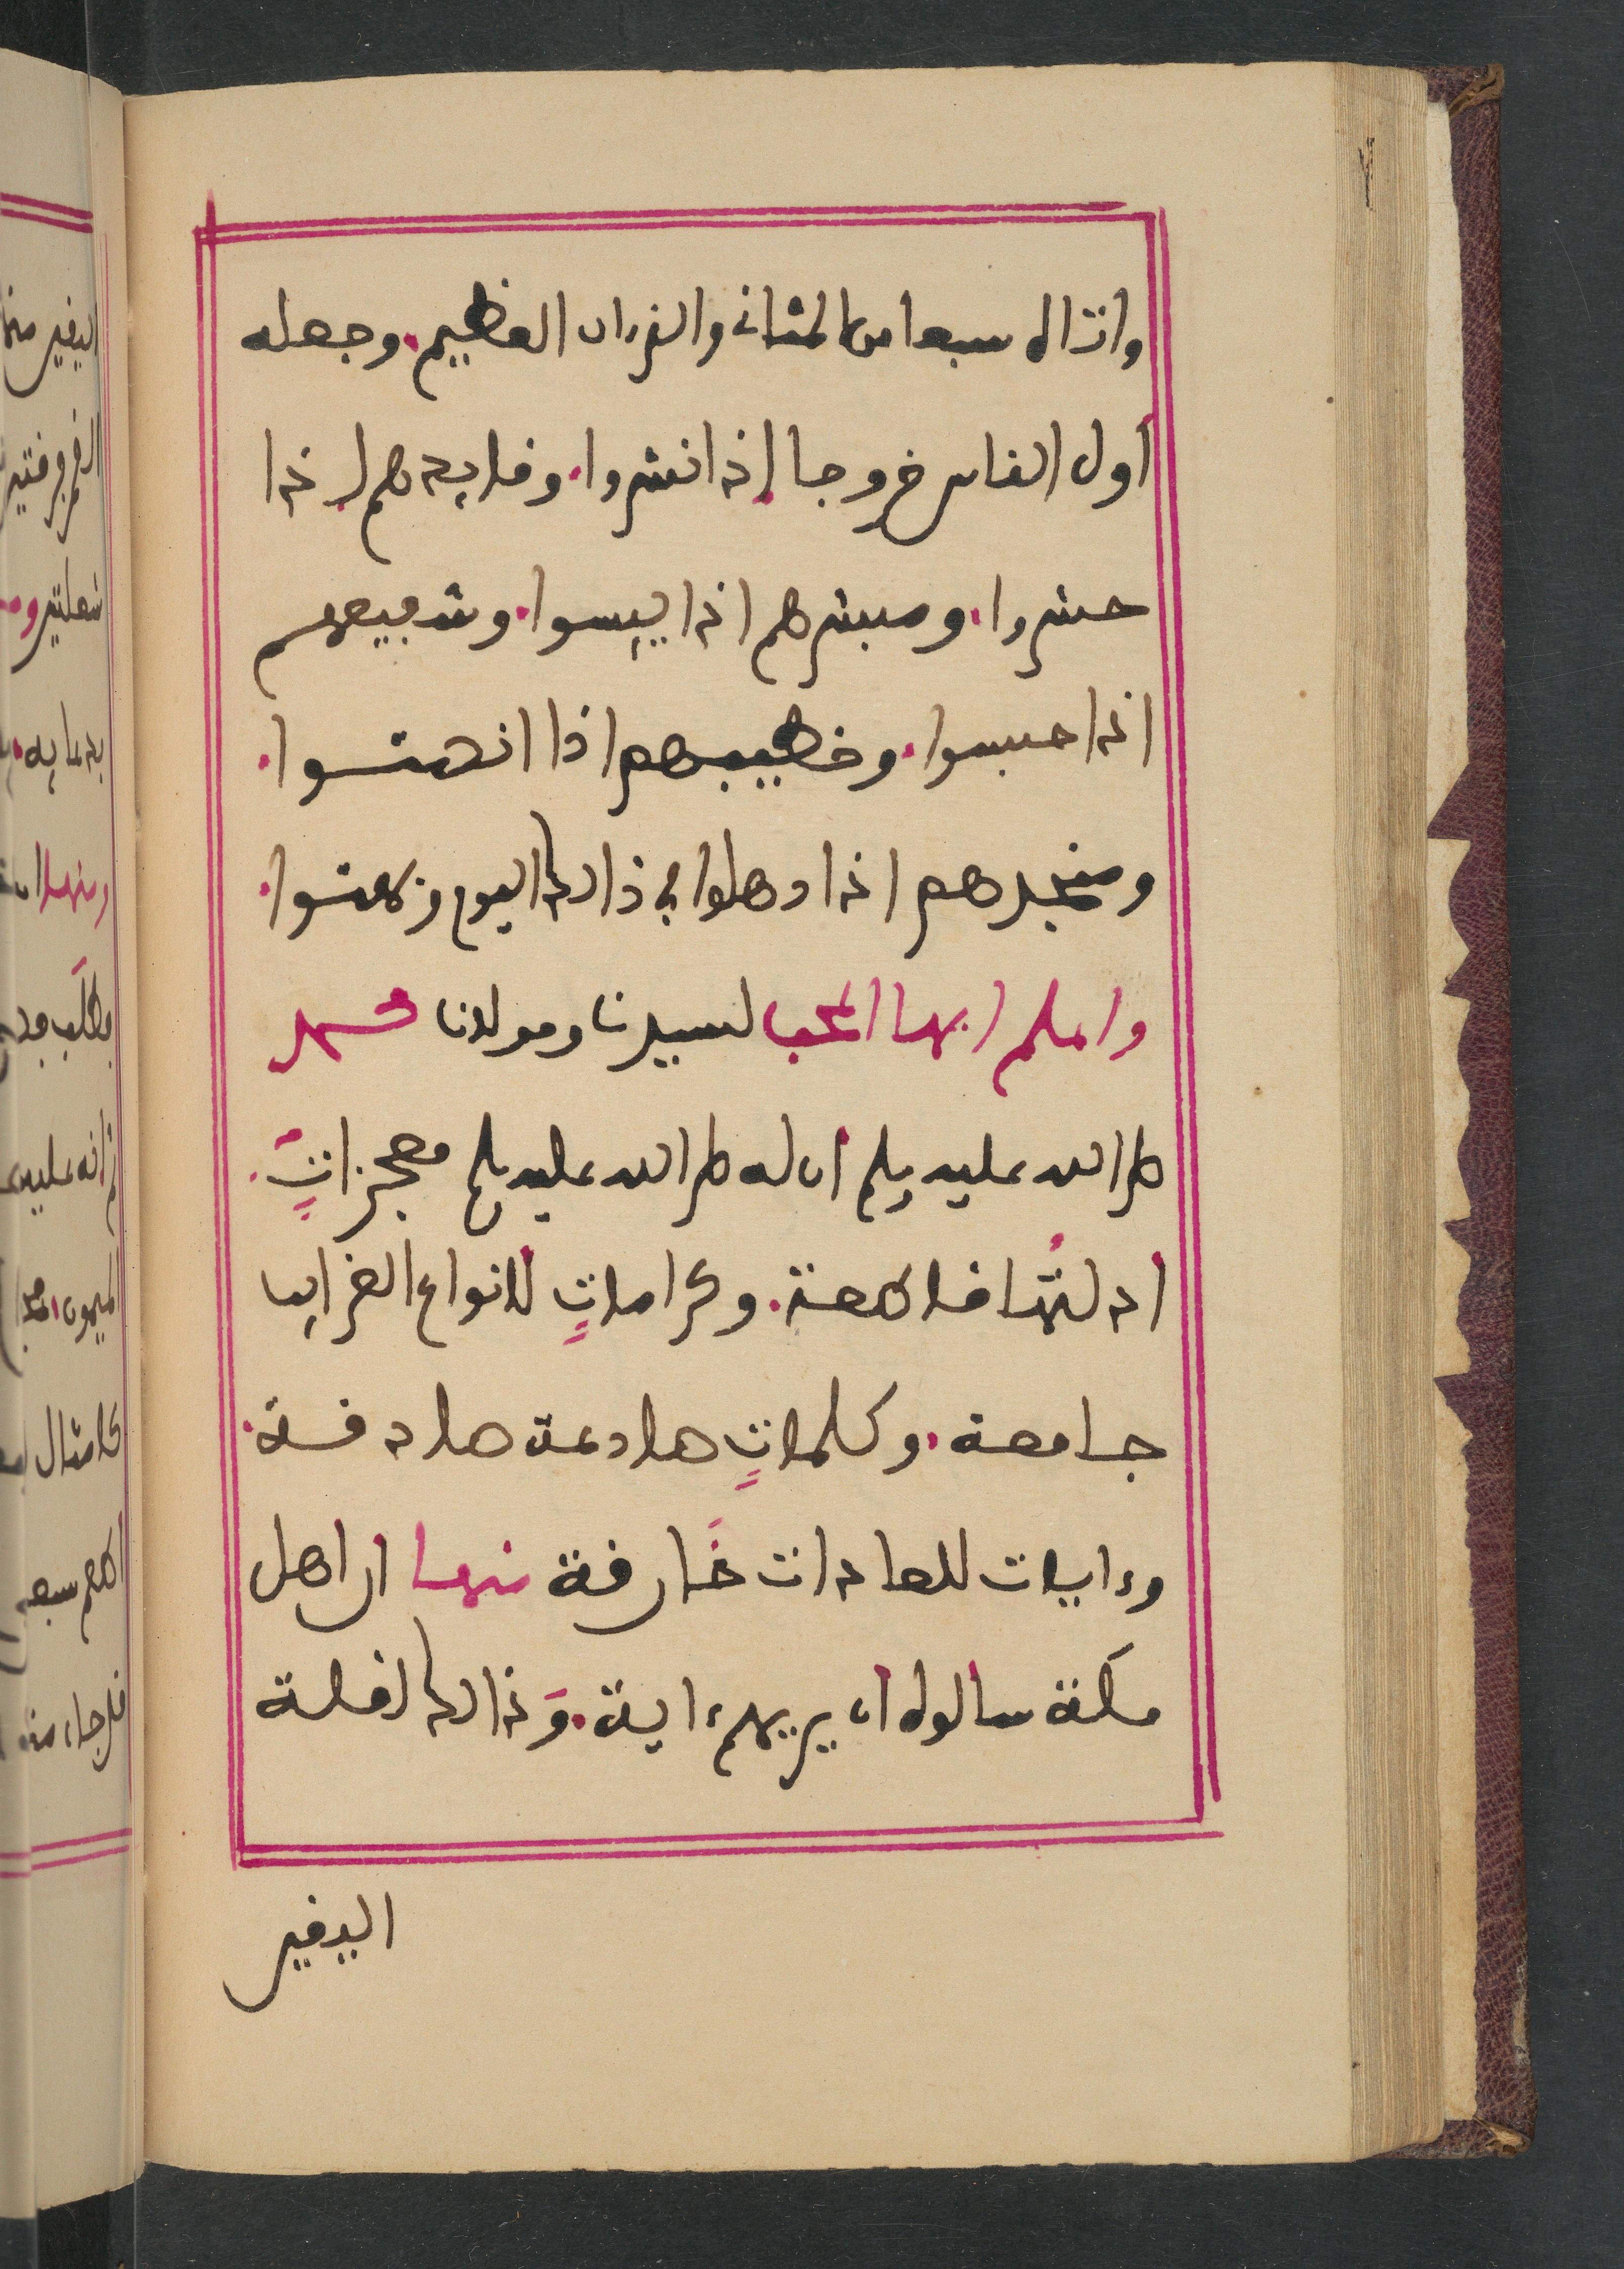 واتاله سبعا من المثاني والقرءان العظيم. وجعله
أول الناس خروجا إذا نشروا. وقايدهم إذا
حشروا. ومبشرهم اذا ييسوا. وشفيعهم
اذا حبسوا. وخطيبهم اذا انصتوا.
ومنجدهم اذا وهلوا في ذالك اليوم وبهتوا.
واعلم ايها المحب لسيدنا ومولانا محمد
صلى الله عليه وسلم أن له صلى الله عليه وسلم معجزاتٍ.
ادلتها قاطعة. وكراماتٍ لأنواع الغرايب
جامعة. وكلماتٍ صادعة صادقة.
وءايات للعادات خارقة منها ان اهل
مكة سالوه أن يريهم ءاية. وَذالك لقلة
اليقين
اليقين منها
شعلتين
ومنها